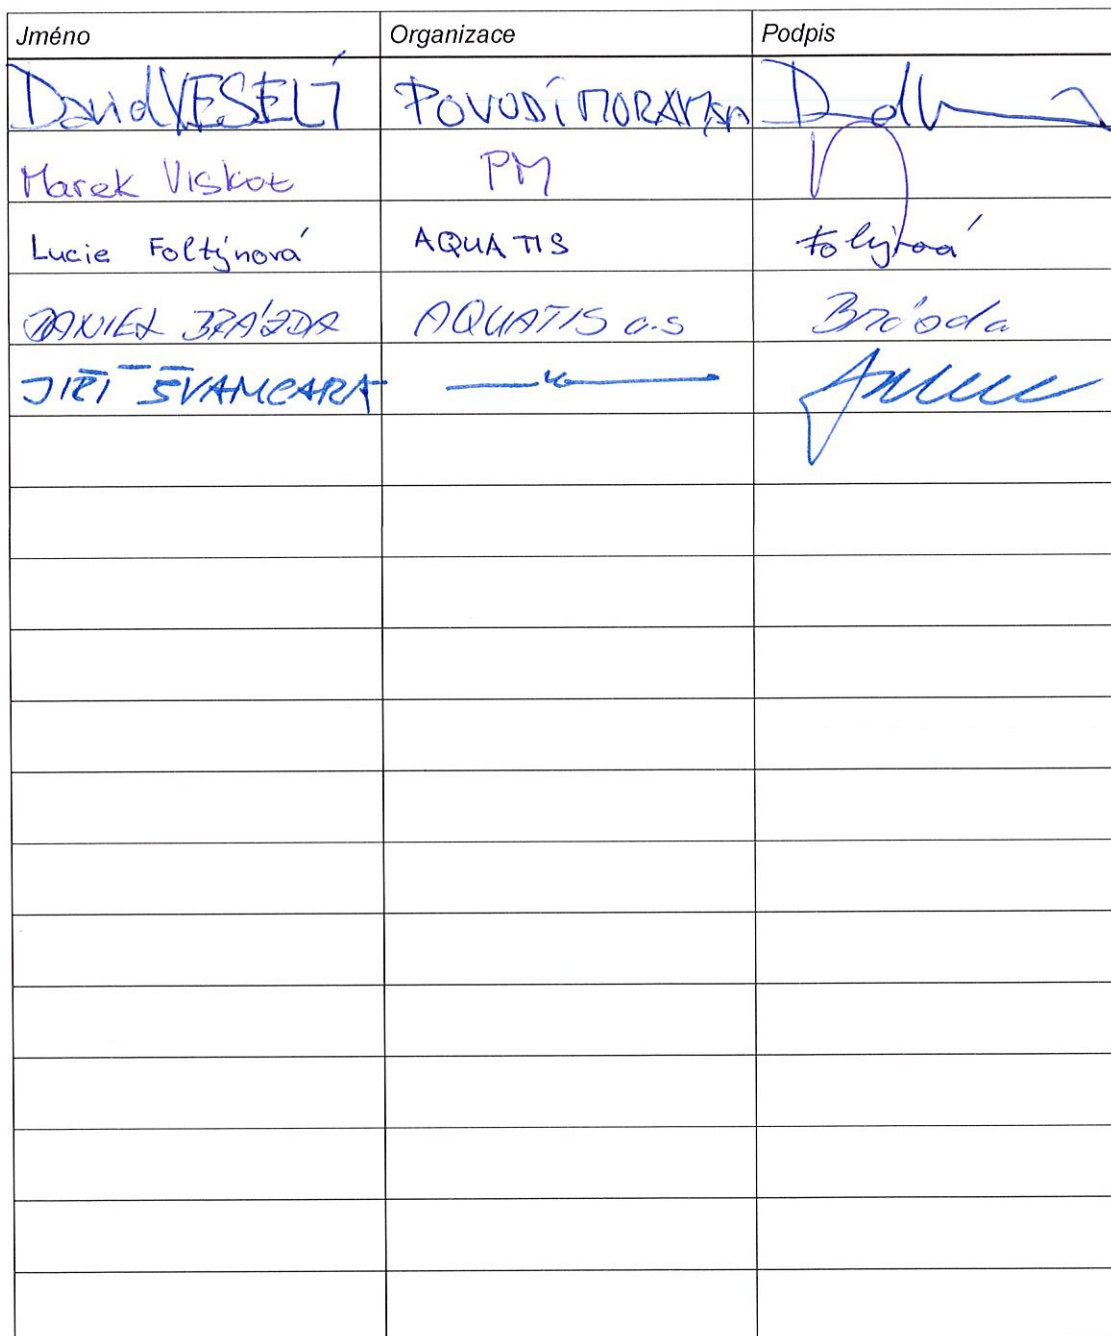 Jméno Organizace Podpis
David VESELÝ POVODÍ MORAVY
Marek Viskot PM
Lucie Foltýnová AQUATIS Foltýnová
DANIEL BRÁZDA AQUATIS a.s Brázda
JIŘÍ ŠVANCARA